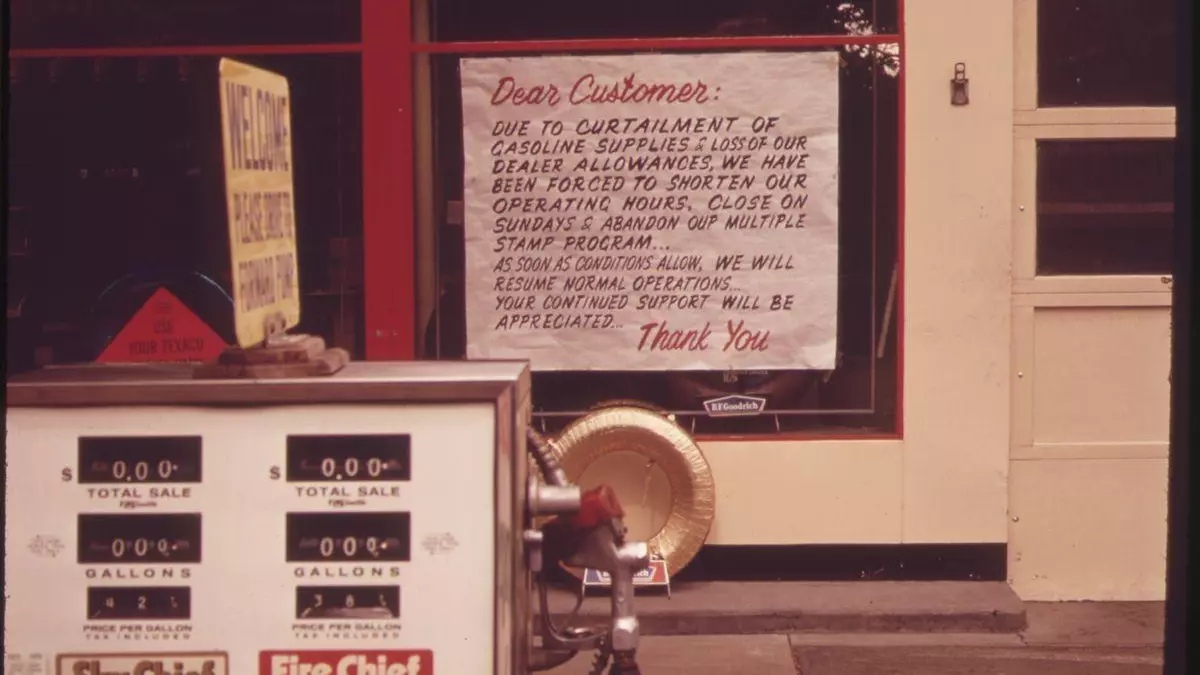 Dear Customer:
DUE TO CURTAILMENT OF
GASOLINE SUPPLIES & LOSS OF OUR
DEALER ALLOWANCES, WE HAVE
BEEN FORCED TO SHORTEN OUR
OPERATING HOURS, CLOSE ON
SUNDAYS & ABANDON OUR MULTIPLE
STAMP PROGRAM...
AS SOON AS CONDITIONS ALLOW, WE WILL
RESUME NORMAL OPERATIONS...
YOUR CONTINUED SUPPORT WILL BE
APPRECIATED...
Thank You
WELCOME
PLEASE DRIVE TO
FORWARD PUMP
YOUR TEXACO
BFGoodrich
$ 0.00
TOTAL SALE
$ 0.00
TOTAL SALE
000
GALLONS
000
GALLONS
42
PRICE PER GALLON
TAX INCLUDED
38
PRICE PER GALLON
TAX INCLUDED
Sky Chief
Fire Chief